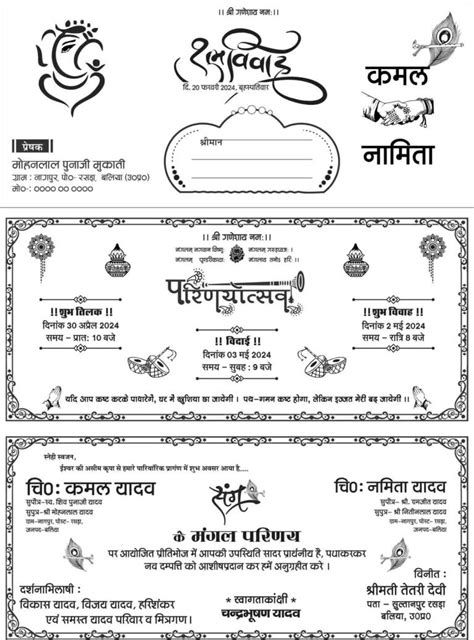 ।। श्री गणेशाय नमः ।।
शुभ विवाह
दि. 20 फरवरी 2024, बृहस्पतिवार
कमल
नामिता
श्रीमान
प्रेषक
मोहनलाल पुनाजी मुकाती
ग्राम : नागपुर, पो० रसड़ा, बलिया (उ०प्र०)
मो०- ०००० ०० ००००
।। श्री गणेशाय नमः ।।
मंगलम् भगवान विष्णु
मंगलम् गरुड़ध्वजः ।
मंगलम्
मंगलाय तनो हरि ।।
परिणयोत्सव
!! शुभ तिलक !!
दिनांक 30 अप्रैल 2024
समय – प्रात: 10 बजे
!! शुभ विवाह !!
दिनांक 2 मई 2024
समय – रात्रि 8 बजे
!! विदाई !!
दिनांक 03 मई 2024
समय – सुबह : 9 बजे
यदि आप कष्ट करके पाधारेगें, घर में खुशिया छा जायेगी । पथ-गमन कष्ट होगा, लेकिन इज्जत मेरी बढ़ जायेगी ।।
स्नेही स्वजन,
ईश्वर की असीम कृपा से हमारे पारिवारिक प्रांगण में शुभ अवसर आया है....
चि०: कमल यादव
सुपौत्र-स्व. शिव पुनाजी यादव
सुपुत्र- श्री मोहनलाल यादव
ग्राम-नागपुर, पोस्ट- रसड़ा,
जनपद-बलिया
संग
चि०: नमिता यादव
सुपौत्र- श्री. रामजीत यादव
सुपुत्र- श्री नितीनलाल यादव
ग्राम-नागपुर, पोस्ट- रसड़ा,
जनपद-बलिया
के मंगल परिणय
पर आयोजित प्रीतिभोज में आपकी उपस्थिति सादर प्रार्थनीय है, पधाकरकर
नव दम्पति को आशीषप्रदान कर हमें अनुग्रहीत करे ।
दर्शनाभिलाषी :
विकास यादव, विजय यादव, हरिशंकर
एवं समस्त यादव परिवार व मित्रगण ।
* स्वागताकांक्षी *
चन्द्रभूषण यादव
विनीत :
श्रीमती तेतरी देवी
पता – सुल्तानपुर रसड़ा
बलिया, उ०प्र०